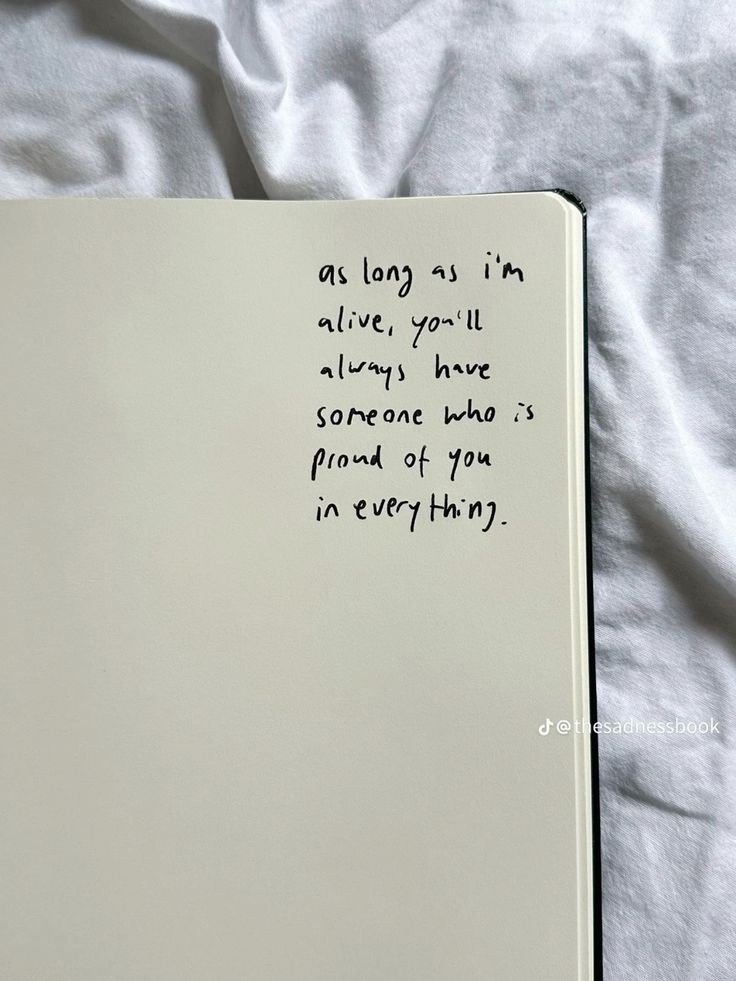 as long as i'm
alive, you'll
always have
someone who is
proud of you
in everything.
@thesadnessbook